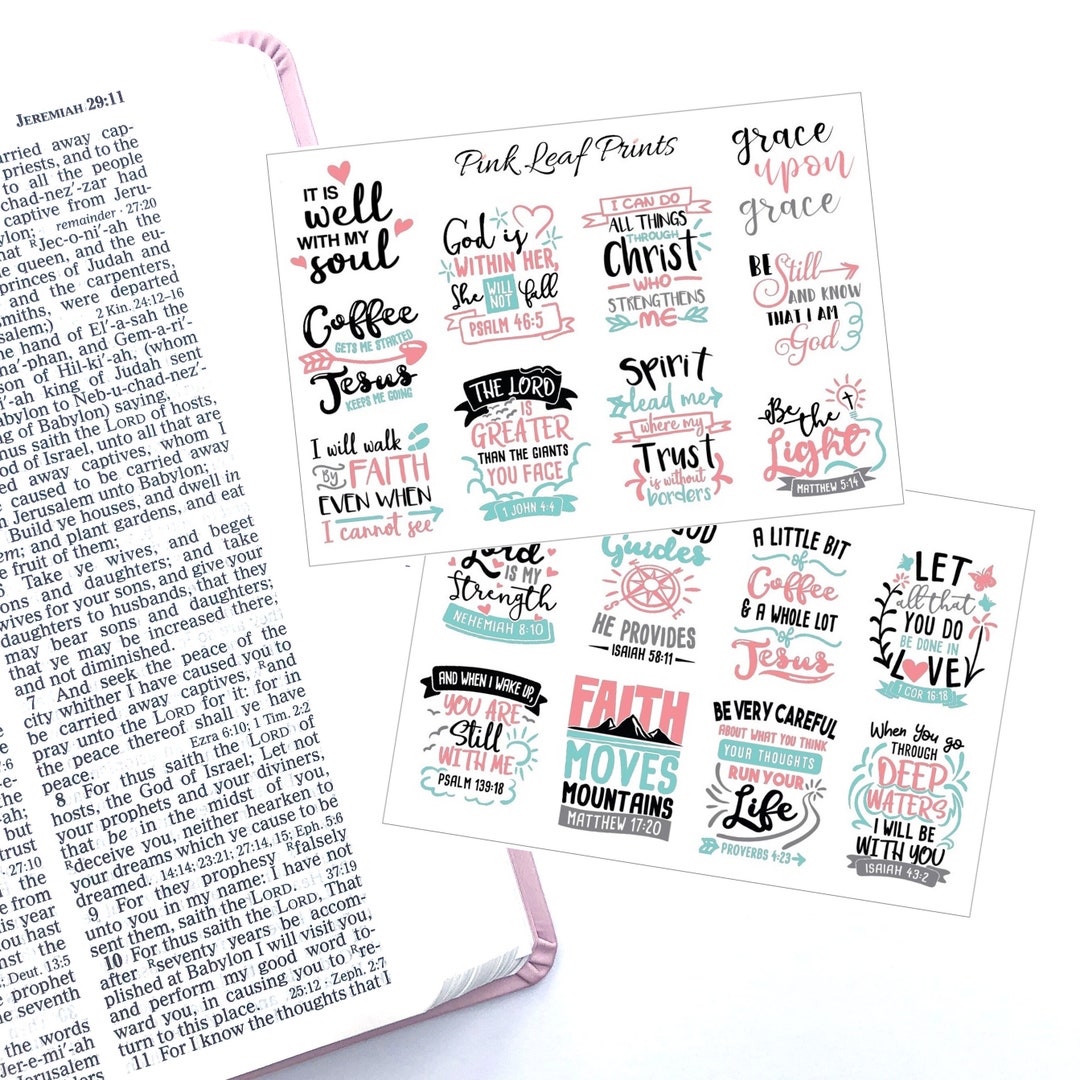 JEREMIAH 29:11
rried away cap-
priests, and to the
to all the people
chad-nez′-zar had
captive from Jeru-
remainder . 27:20
that ᴿJec-o-ni′-ah the
queen, and the eu-
princes of Judah and
and the carpenters,
smiths, were departed
2 Kin. 24:12–16
hand of El′-a-sah the
phan, and Gem-a-ri′-
son of Hil-ki′-ah, (whom
king of Judah sent
Babylon to Neb-u-chad-nez′-
of Babylon) saying,
saith the LORD of hosts,
God of Israel, unto all that are
away captives, whom I
caused to be carried away
Jerusalem unto Babylon;
Build ye houses, and dwell in
them; and plant gardens, and eat
fruit of them;
Take ye wives, and beget
sons and daughters; and take
wives for your sons, and give your
daughters to husbands, that they
may bear sons and daughters;
that ye may be increased there,
and not diminished.
7 And seek the peace of the
city whither I have caused you to
be carried away captives, ᴿand
pray unto the LORD for it: for in
the peace thereof shall ye have
peace. Ezra 6:10; 1 Tim. 2:2
8 For thus saith the LORD of
hosts, the God of Israel; Let not
your prophets and your diviners,
that be in the midst of you,
ᴿdeceive you, neither hearken to
your dreams which ye cause to be
dreamed. 14:14; 23:21; 27:14,15; Eph. 5:6
9 For they prophesy ᴿfalsely
unto you in my name: I have not
sent them, saith the LORD. 37:19
10 For thus saith the LORD, That
after ᴿseventy years be accom-
plished at Babylon I will visit you,
and perform my good word to-
ward you, in causing you to ᴿre-
turn to this place. 25:12 · Zeph. 2:7
11 For I know the thoughts that I
but
trust
27:10
the
from
his year
hast
the
Deut. 13:5
prophet
the seventh
the words
Jer-e-mi′-ah
Pink Leaf Prints
IT IS
well
WITH MY
soul
God is
WITHIN HER,
She WILL NOT fall
PSALM 46:5
I CAN DO
ALL THINGS
THROUGH
Christ
WHO
STRENGTHENS
ME
grace
upon
grace
Coffee
GETS ME STARTED
Jesus
KEEPS ME GOING
THE LORD
IS
GREATER
THAN THE GIANTS
YOU FACE
1 JOHN 4:4
Spirit
lead me
where my
Trust
is without
borders
BE Still
AND KNOW
THAT I AM
God
I will walk
By FAITH
EVEN WHEN
I cannot see
Be the
Light
MATTHEW 5:14
Lord
IS MY
Strength
NEHEMIAH 8:10
GOD
Guides
HE PROVIDES
ISAIAH 58:11
A LITTLE BIT
of
Coffee
& A WHOLE LOT
of
Jesus
LET
all that
YOU DO
BE DONE IN
LOVE
1 COR 16-18
AND WHEN I WAKE UP,
YOU ARE
Still
WITH ME
PSALM 139:18
FAITH
MOVES
MOUNTAINS
MATTHEW 17:20
BE VERY CAREFUL
ABOUT WHAT YOU THINK
YOUR THOUGHTS
RUN YOUR
Life
PROVERBS 4:23
When You go
THROUGH
DEEP
WATERS
I WILL BE
WITH YOU
ISAIAH 43:2